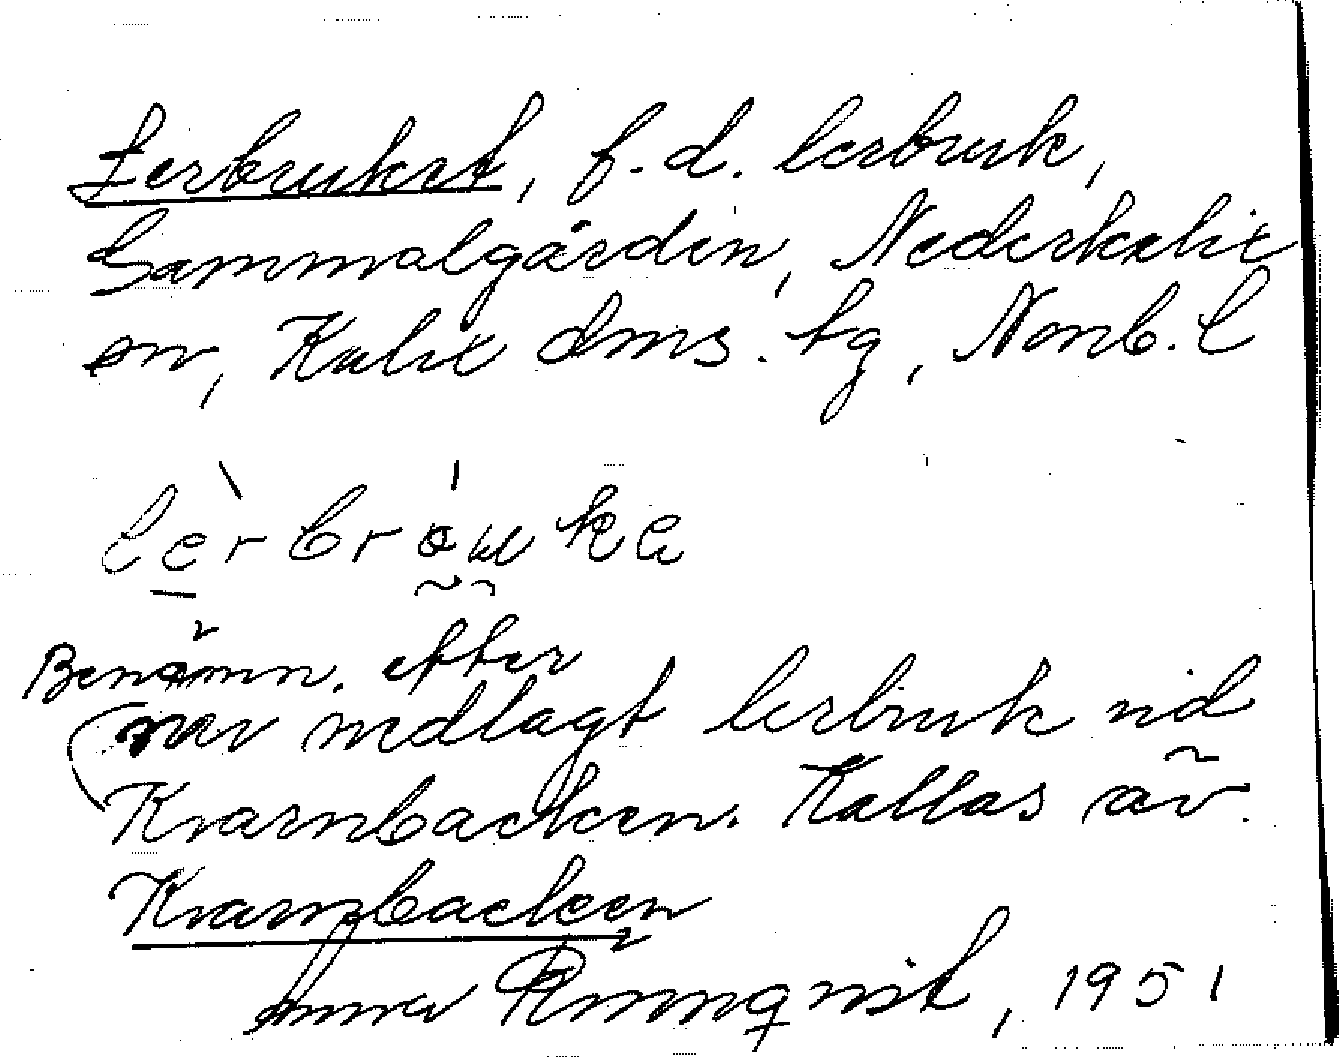 Lerbruket, f.d. lerbruk,
Gammalgården, Nederkalix
sn, Kalix dms. tg, Norrb. l
lèrbròuka
Benämn. efter
nu nedlagt lerbruk vid
Kvarnbacken. Kallas äv.
Kvarnbacken
Rönnqvist, 1951